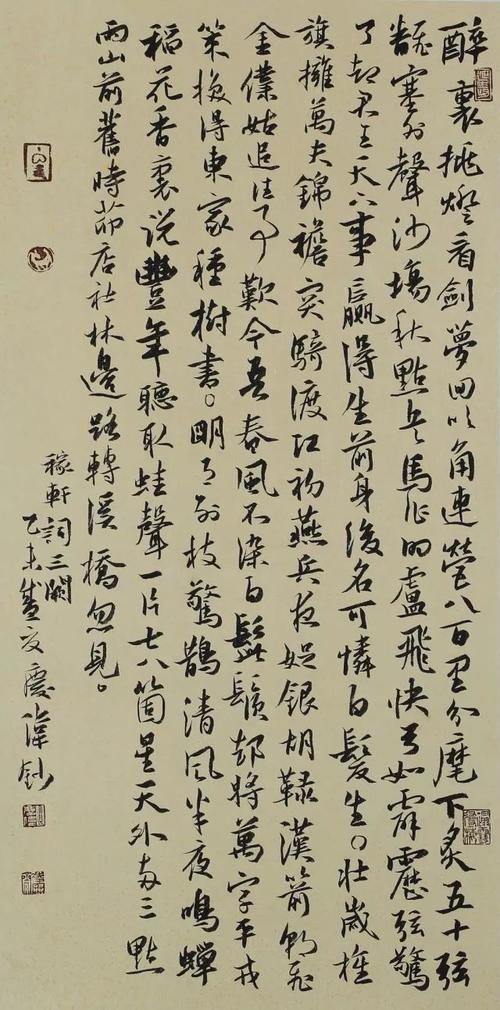 醉裏挑燈看劍夢回吹角連營八百里分麾下炙五十弦
翻塞外聲沙場秋點兵馬作的盧飛快弓如霹靂弦驚
了却君王天下事贏得生前身後名可憐白髮生。壯歲旌
旗擁萬夫錦襜突騎渡江初燕兵夜娖銀胡䩮漢箭朝飛
金僕姑追往事歎今吾春風不染白髭鬚却將萬字平戎
策換得東家種樹書。明月別枝驚鵲清風半夜鳴蟬
稻花香裏說豐年聽取蛙聲一片七八箇星天外兩三點
雨山前舊時茆店社林邊路轉溪橋忽見。
稼軒詞三闋
乙未盛夏慶偉鈔